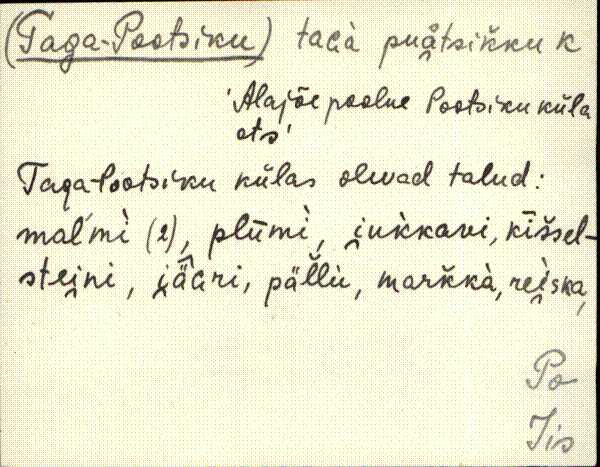 (Taga-Pootsiku) tacà puå̯tsik̆ku k
'Alajõe poolne Pootsiku küla
ots'
Taga-Pootsiku külas olevad talud:
mal´mì (2), plūmì, i̯uk̀kavi, kīšsel-
stei̯ni, i̯ääri, päl̆lù, mark̆kà, rei̯ska,
Po
Iis